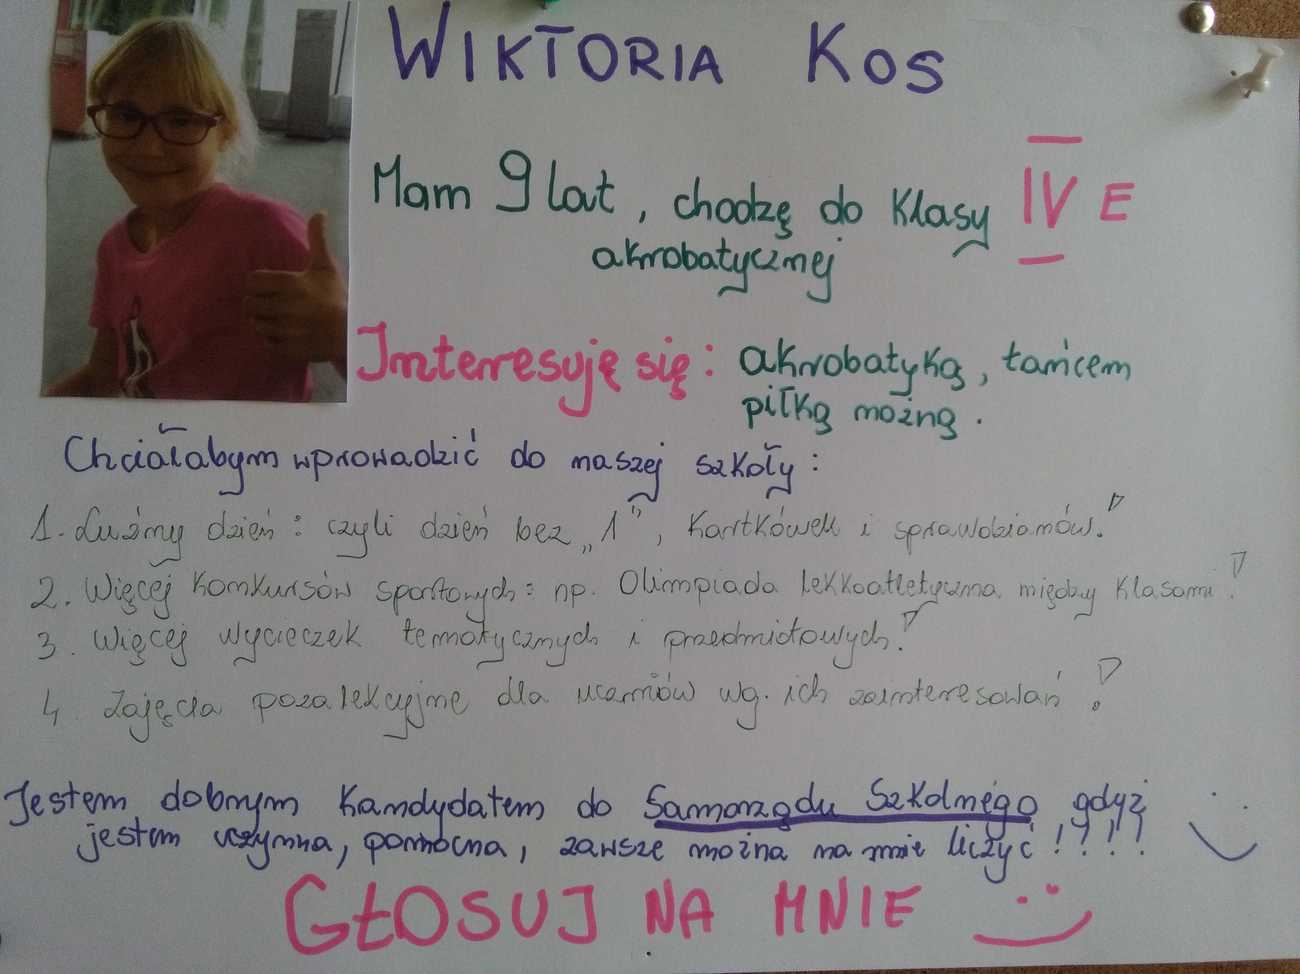 WIKTORIA KOS
Mam 9 lat, chodzę do klasy IV E
akrobatycznej
Interesuję się: akrobatyką, tańcem
piłką nożną.
Chciałabym wprowadzić do naszej szkoły:
1. Luźny dzień: czyli dzień bez „1”, kartkówek i sprawdzianów!
2. Więcej konkursów sportowych: np. Olimpiada lekkoatletyczna między klasami!
3. Więcej wycieczek tematycznych i przedmiotowych!
4. Zajęcia pozalekcyjne dla uczniów wg. ich zainteresowań!
Jestem dobrym kandydatem do Samorządu Szkolnego, gdyż
jestem uczynna, pomocna, zawsze można na mnie liczyć!!!!
GŁOSUJ NA MNIE